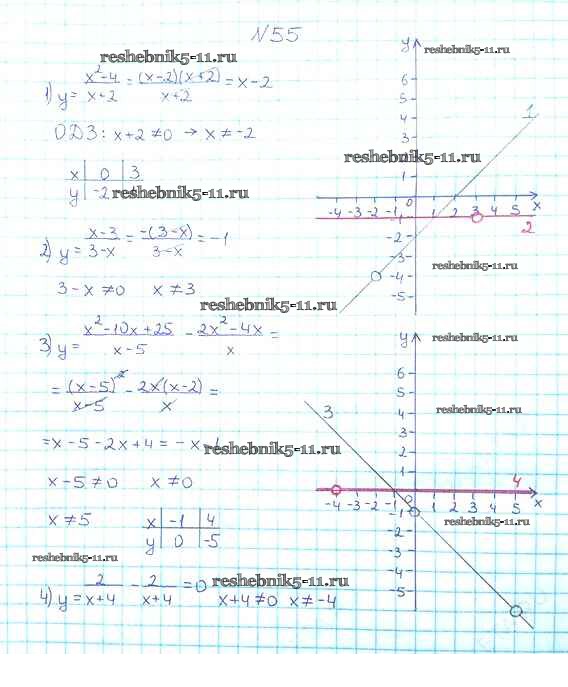 N55
reshebnik5-11.ru
1) y = (x²-4)/(x+2) = ((x-2)(x+2))/(x+2) = x-2
ОДЗ: x+2 ≠ 0 → x ≠ -2
x | 0 | 3
y | -2
reshebnik5-11.ru
2) y = (x-3)/(3-x) = (-(3-x))/(3-x) = -1
3-x ≠ 0 x ≠ 3
reshebnik5-11.ru
3) y = (x²-10x+25)/(x-5) - (2x²-4x)/x =
= (x-5)²/(x-5) - (2x(x-2))/x =
= x-5-2x+4 = -x-1
reshebnik5-11.ru
x-5 ≠ 0 x ≠ 0
x ≠ 5
x | -1 | 4
y | 0 | -5
reshebnik5-11.ru
4) y = 2/(x+4) - 2/(x+4) = 0 x+4 ≠ 0 x ≠ -4
reshebnik5-11.ru
y
reshebnik5-11.ru
6
5
4
3
1
reshebnik5-11.ru
1
0
-4 -3 -2 -1 1 2 3 4 5 x
-1
2
-2
-3
-4
-5
reshebnik5-11.ru
y
reshebnik5-11.ru
6
5
4
3
2
1
reshebnik5-11.ru
3
4
0
-4 -3 -2 -1 1 2 3 4 5 x
-1
-2
-3
-4
-5
reshebnik5-11.ru